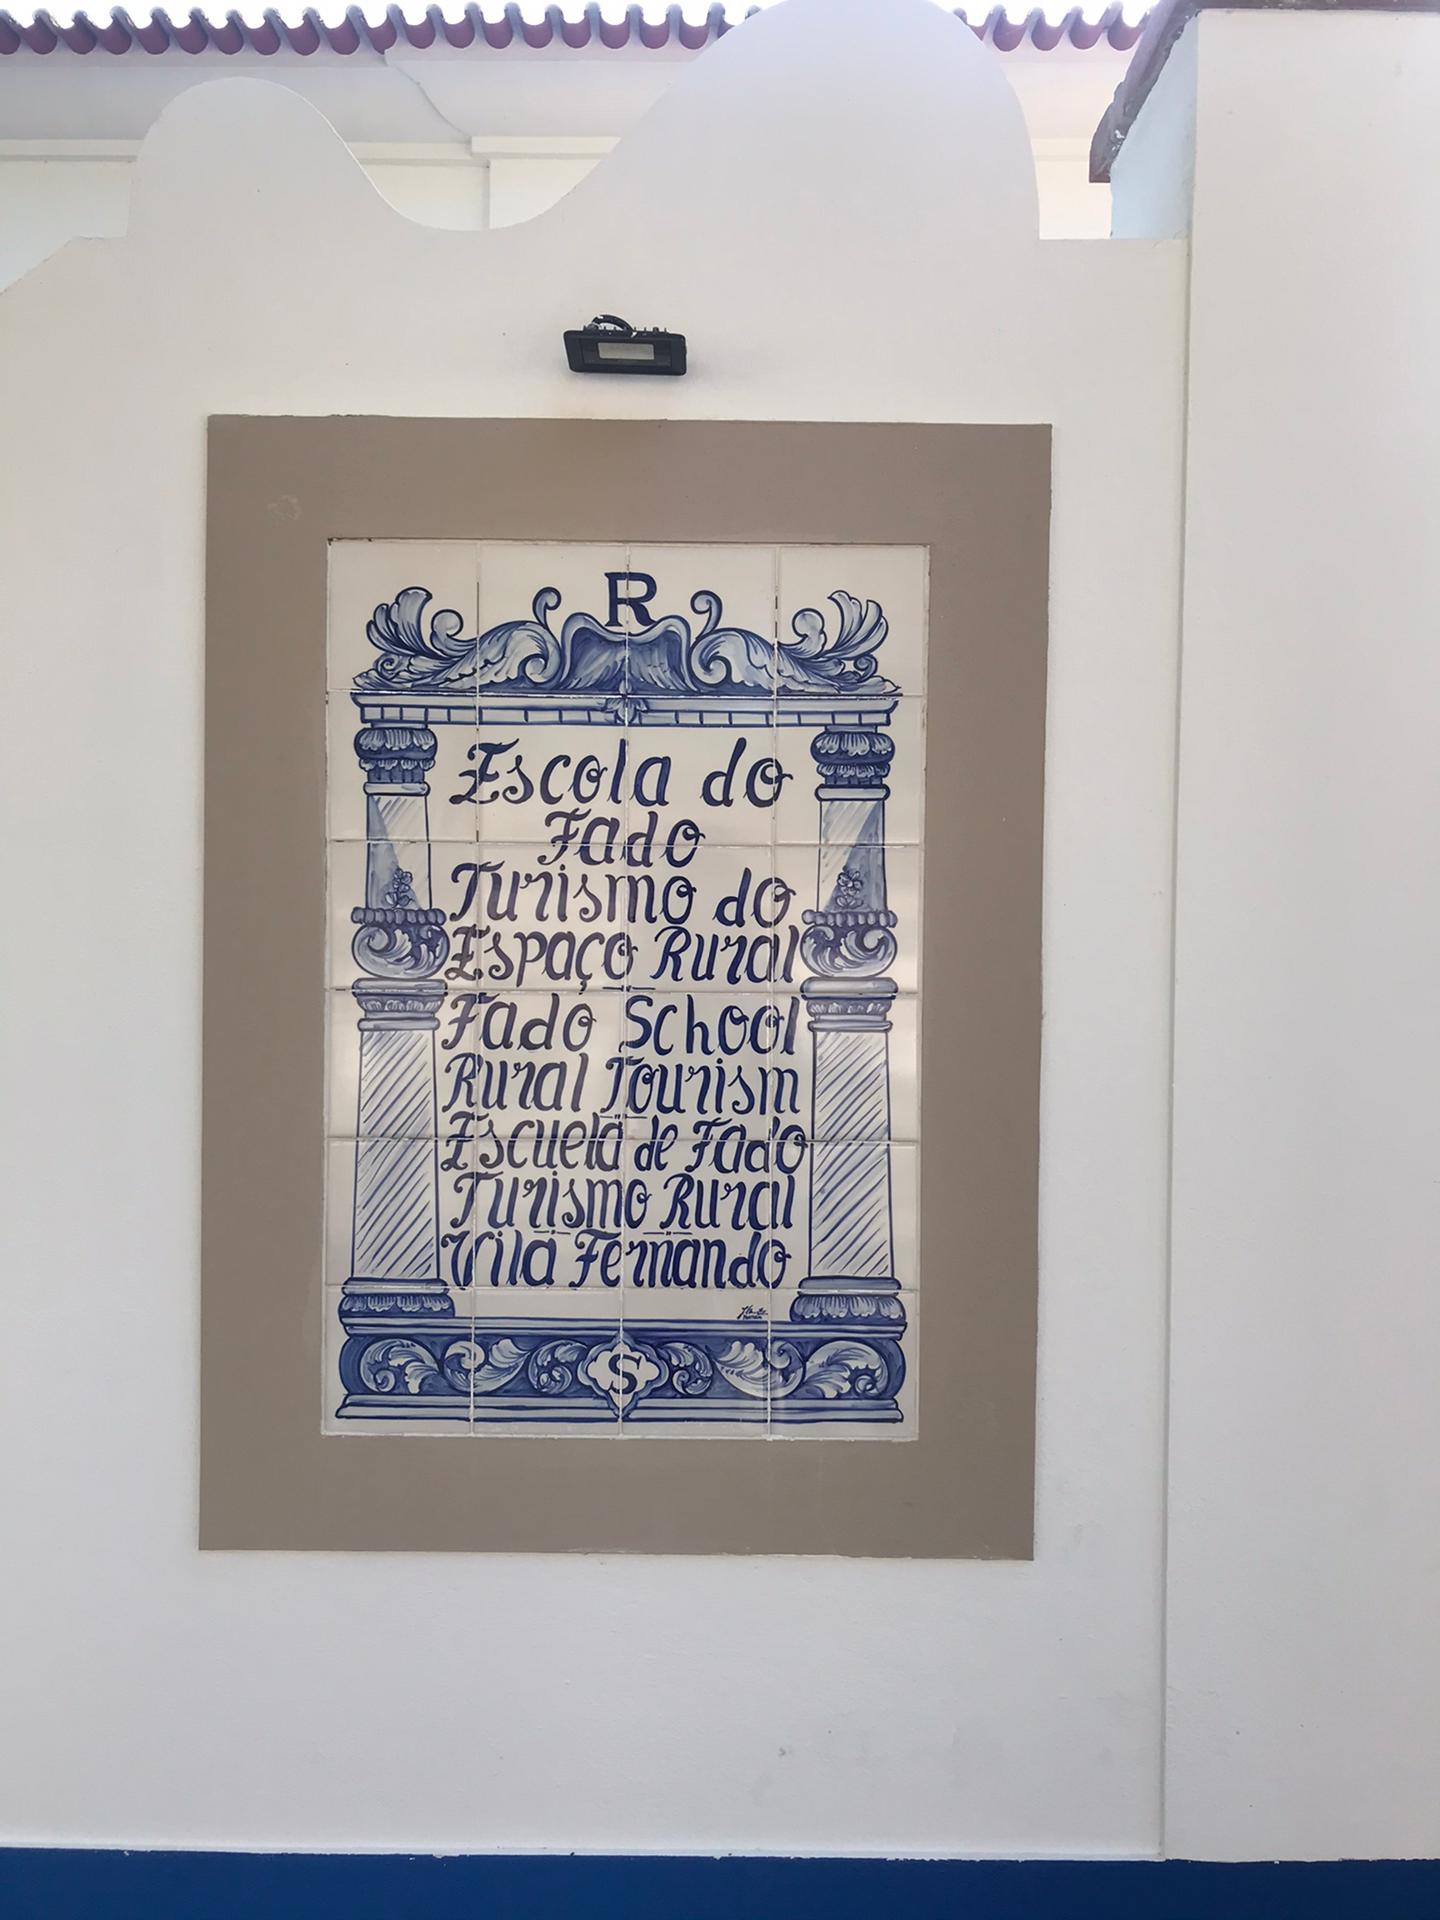 R
Escola do
Fado
Turismo do
Espaço Rural
Fado School
Rural Tourism
Escuela de Fado
Turismo Rural
Vila Fernando
S